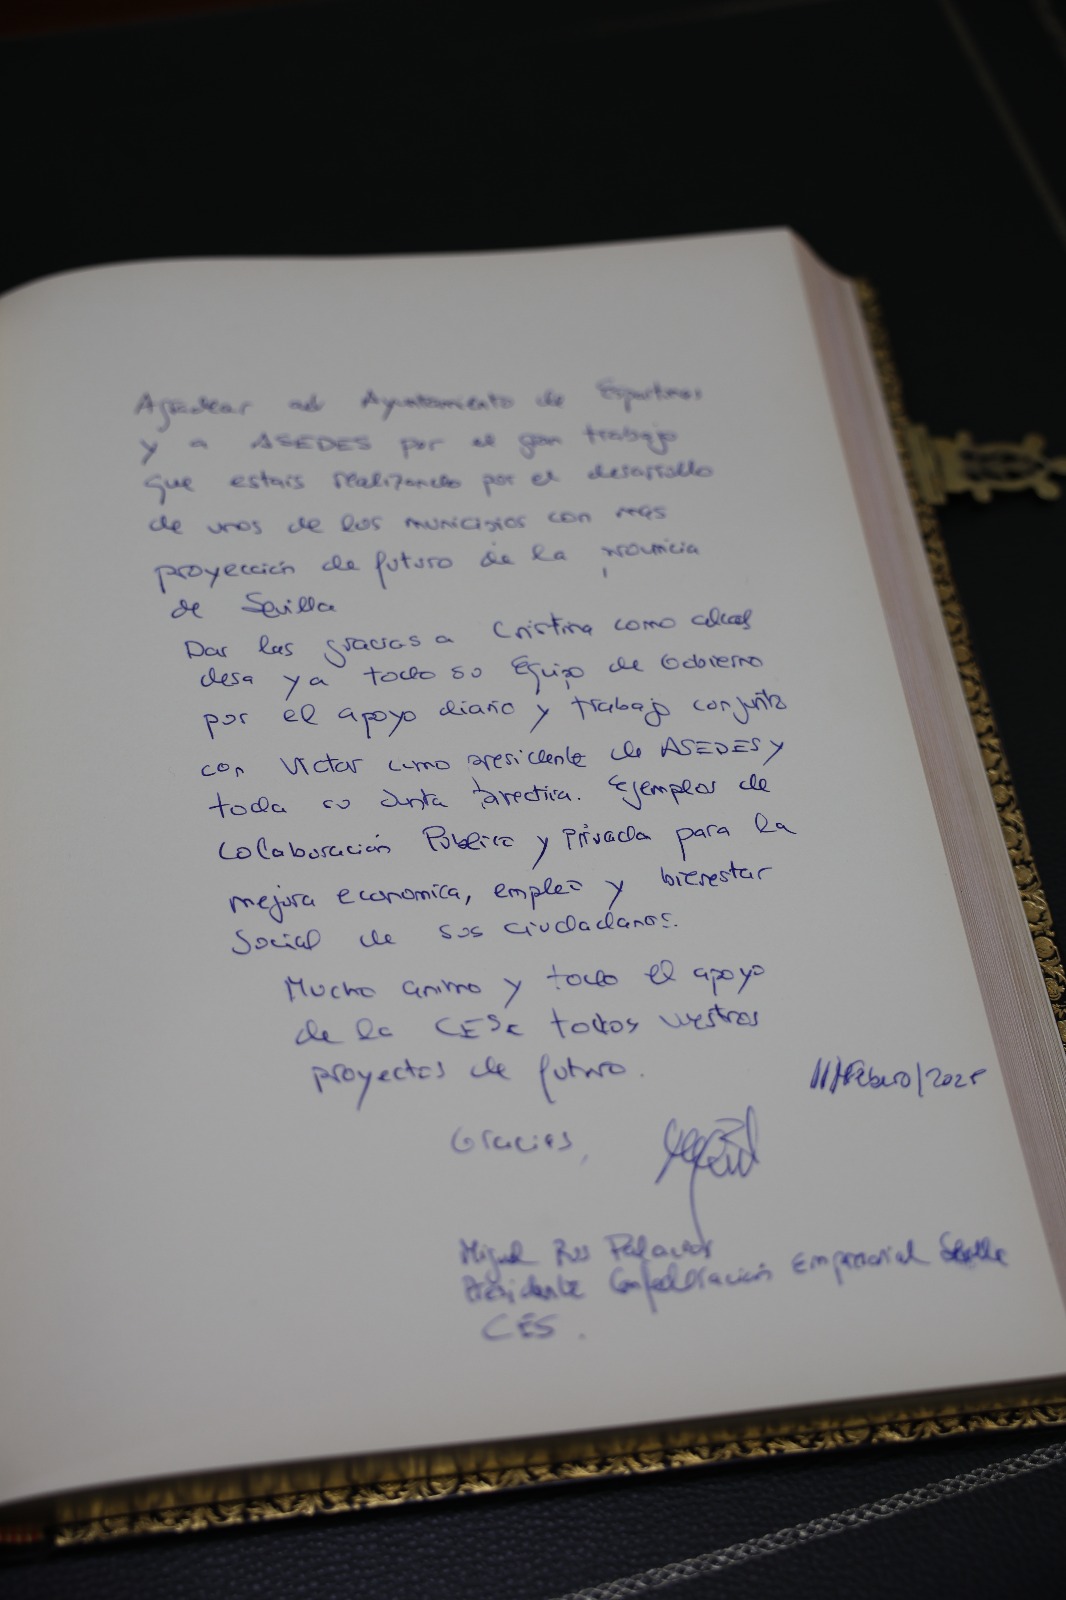 Agradecer al Ayuntamiento de Espartinas
y a ASEDES por el gran trabajo
que estais realizando por el desarrollo
de unos de los municipios con mas
proyección de futuro de la provincia
de Sevilla
Dar las gracias a Cristina como alcal
desa y a todo su Equipo de Gobierno
por el apoyo diario y trabajo conjunto
con Victor como presidente de ASEDES y
toda su Junta Directiva. Ejemplos de
Colaboración Publica y Privada para la
mejora economica, empleo y bienestar
Social de sus ciudadanos.
Mucho animo y todo el apoyo
de la CES a todos vuestros
proyectos de futuro.
11/Febrero/2025
Gracias,
Miguel Rus Palacios
Presidente Confederación Empresarial Sevilla
CES.